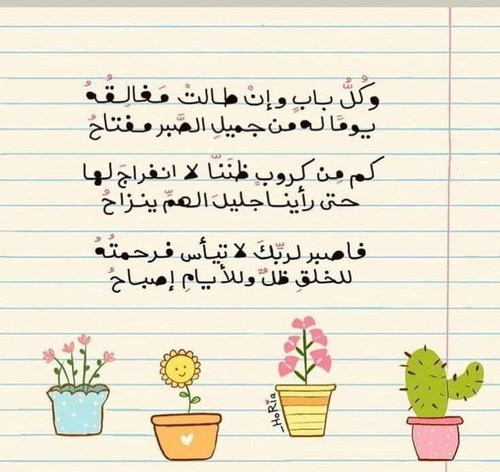 وكُلُّ بابٍ وإنْ طالتْ مَغالِقُهُ
يومًا له من جميلِ الصَّبر مفتاحُ
كم مِن كروبٍ ظَننَّا لا انفراجَ لها
حتى رأينا جليلَ الهمِّ ينزاحُ
فاصبر لربِّكَ لا تيأس فرحمتُهُ
للخلقِ ظلٌّ وللأيامِ إصباحُ
HoRia